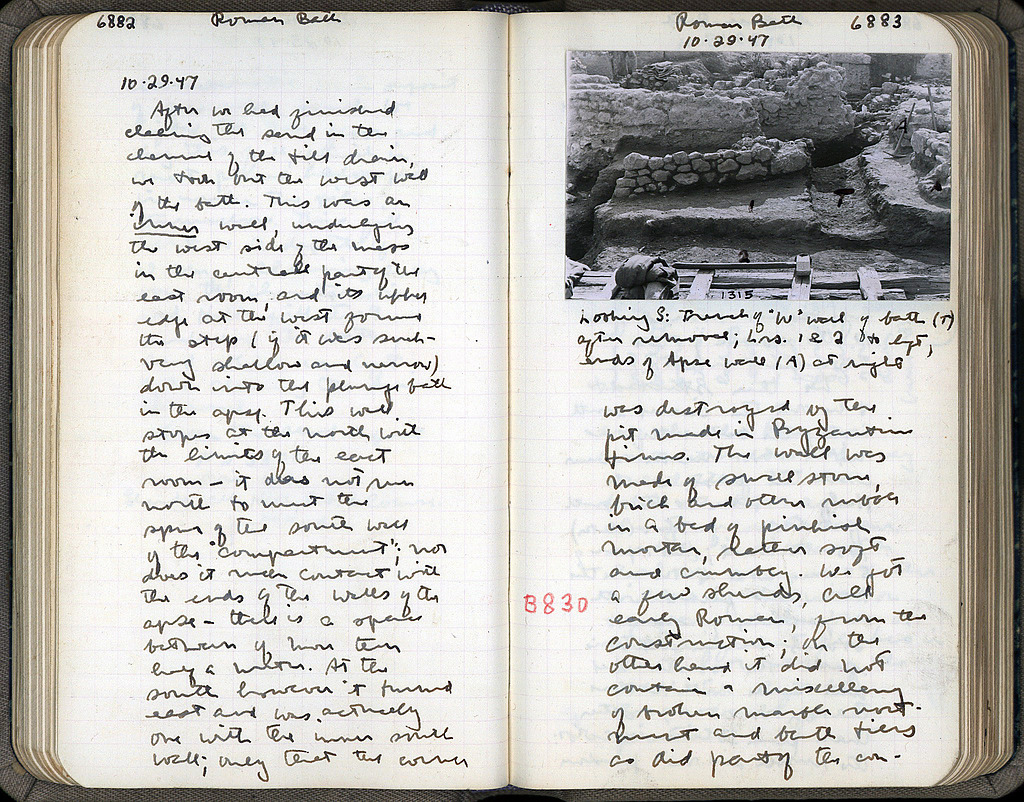 6882
Roman Bath
10·29·47
After we had finished
clearing the sand in the
channel of the tile drain,
we took out the west wall
of the bath. This was an
inner wall, underlying
the west side of the mass
in the central part of the
east room, and its upper
edge at the west formed
the step (if it was such –
very shallow and narrow)
down into the plunge bath
in the apse. This wall
stops at the north with
the limits of the east
room – it does not run
north to meet the
spur of the south wall
of the "compartment"; nor
does it make contact with
the ends of the walls of the
apse – there is a space
between of more than
half a metre. At the
south however it turned
east and was actually
one with the inner south
wall; only that the corner
Roman Bath
6883
10·29·47
A
T
1
2
1315
Looking S: Trench of "W" wall of bath (T)
after removal; Lrs. 1 & 2 to left,
ends of Apse wall (A) at right
was destroyed by the
pit made in Byzantine
times. The wall was
made of small stones,
brick and other rubble
in a bed of pinkish
mortar, rather soft
and crumbly. We got
B830
a few sherds, all
early Roman, from the
construction; on the
other hand it did not
contain a miscellany
of broken marble revet-
ment and bath tiles
as did part of the con-